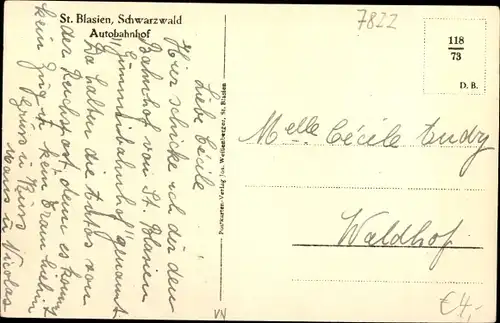 St. Blasien, Schwarzwald
Autobahnhof
7822
118
73
D. B.
Liebe Cécile
Hier schicke ich dir den
Bahnhof von St. Blasien
"Gummibahnhof" genannt
Da halten die Autos von
der Reichspost denn es kommt
kein Zug u. kein Tram hiehin
Gruss u Küss
Mams u Nicolas
Postkarten-Verlag Jos. Weissenberger, St. Blasien
Melle Cécile Eudry
Waldhof
VN
€4,-